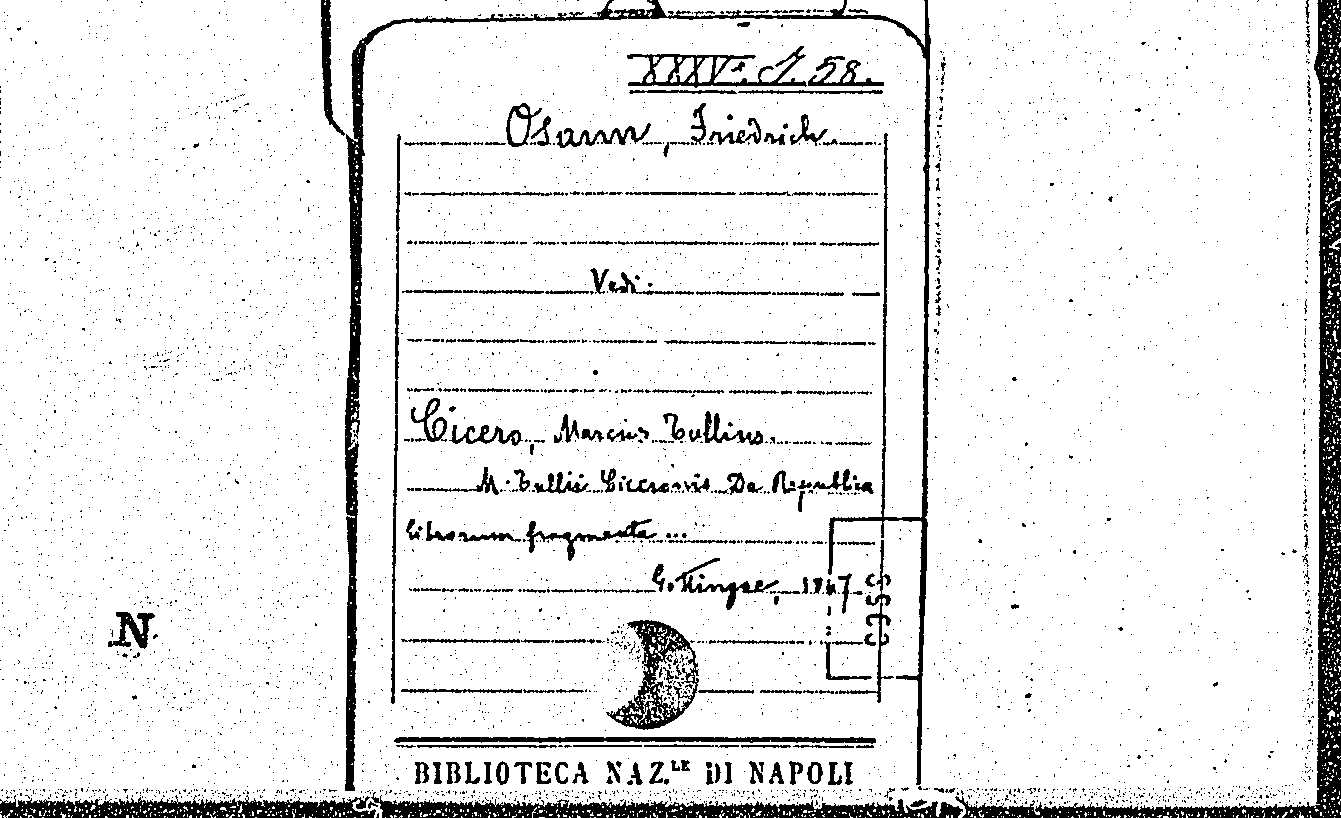 XXXV. J. 58.
Osann, Friedrich.
Vedi.
Cicero, Marcus Tullius.
M. Tullii Ciceronis De Republica
librorum fragmenta ...
Gottingae, 1847
BIBLIOTECA NAZ.LE DI NAPOLI
N